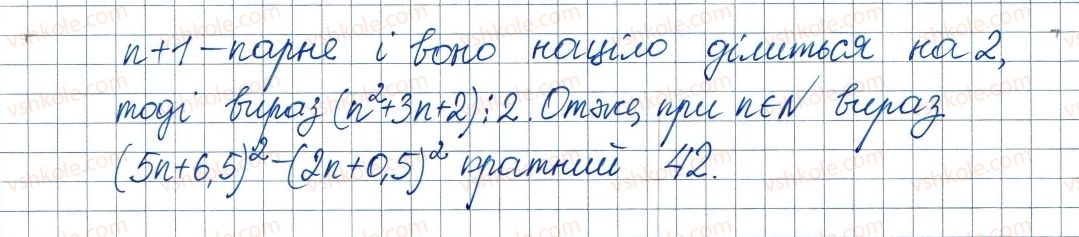 n+1 – парне і воно націло ділиться на 2,
тоді вираз (n²+3n+2)⋮2. Отже, при n∈N вираз
(5n+6,5)²–(2n+0,5)² кратний 42.